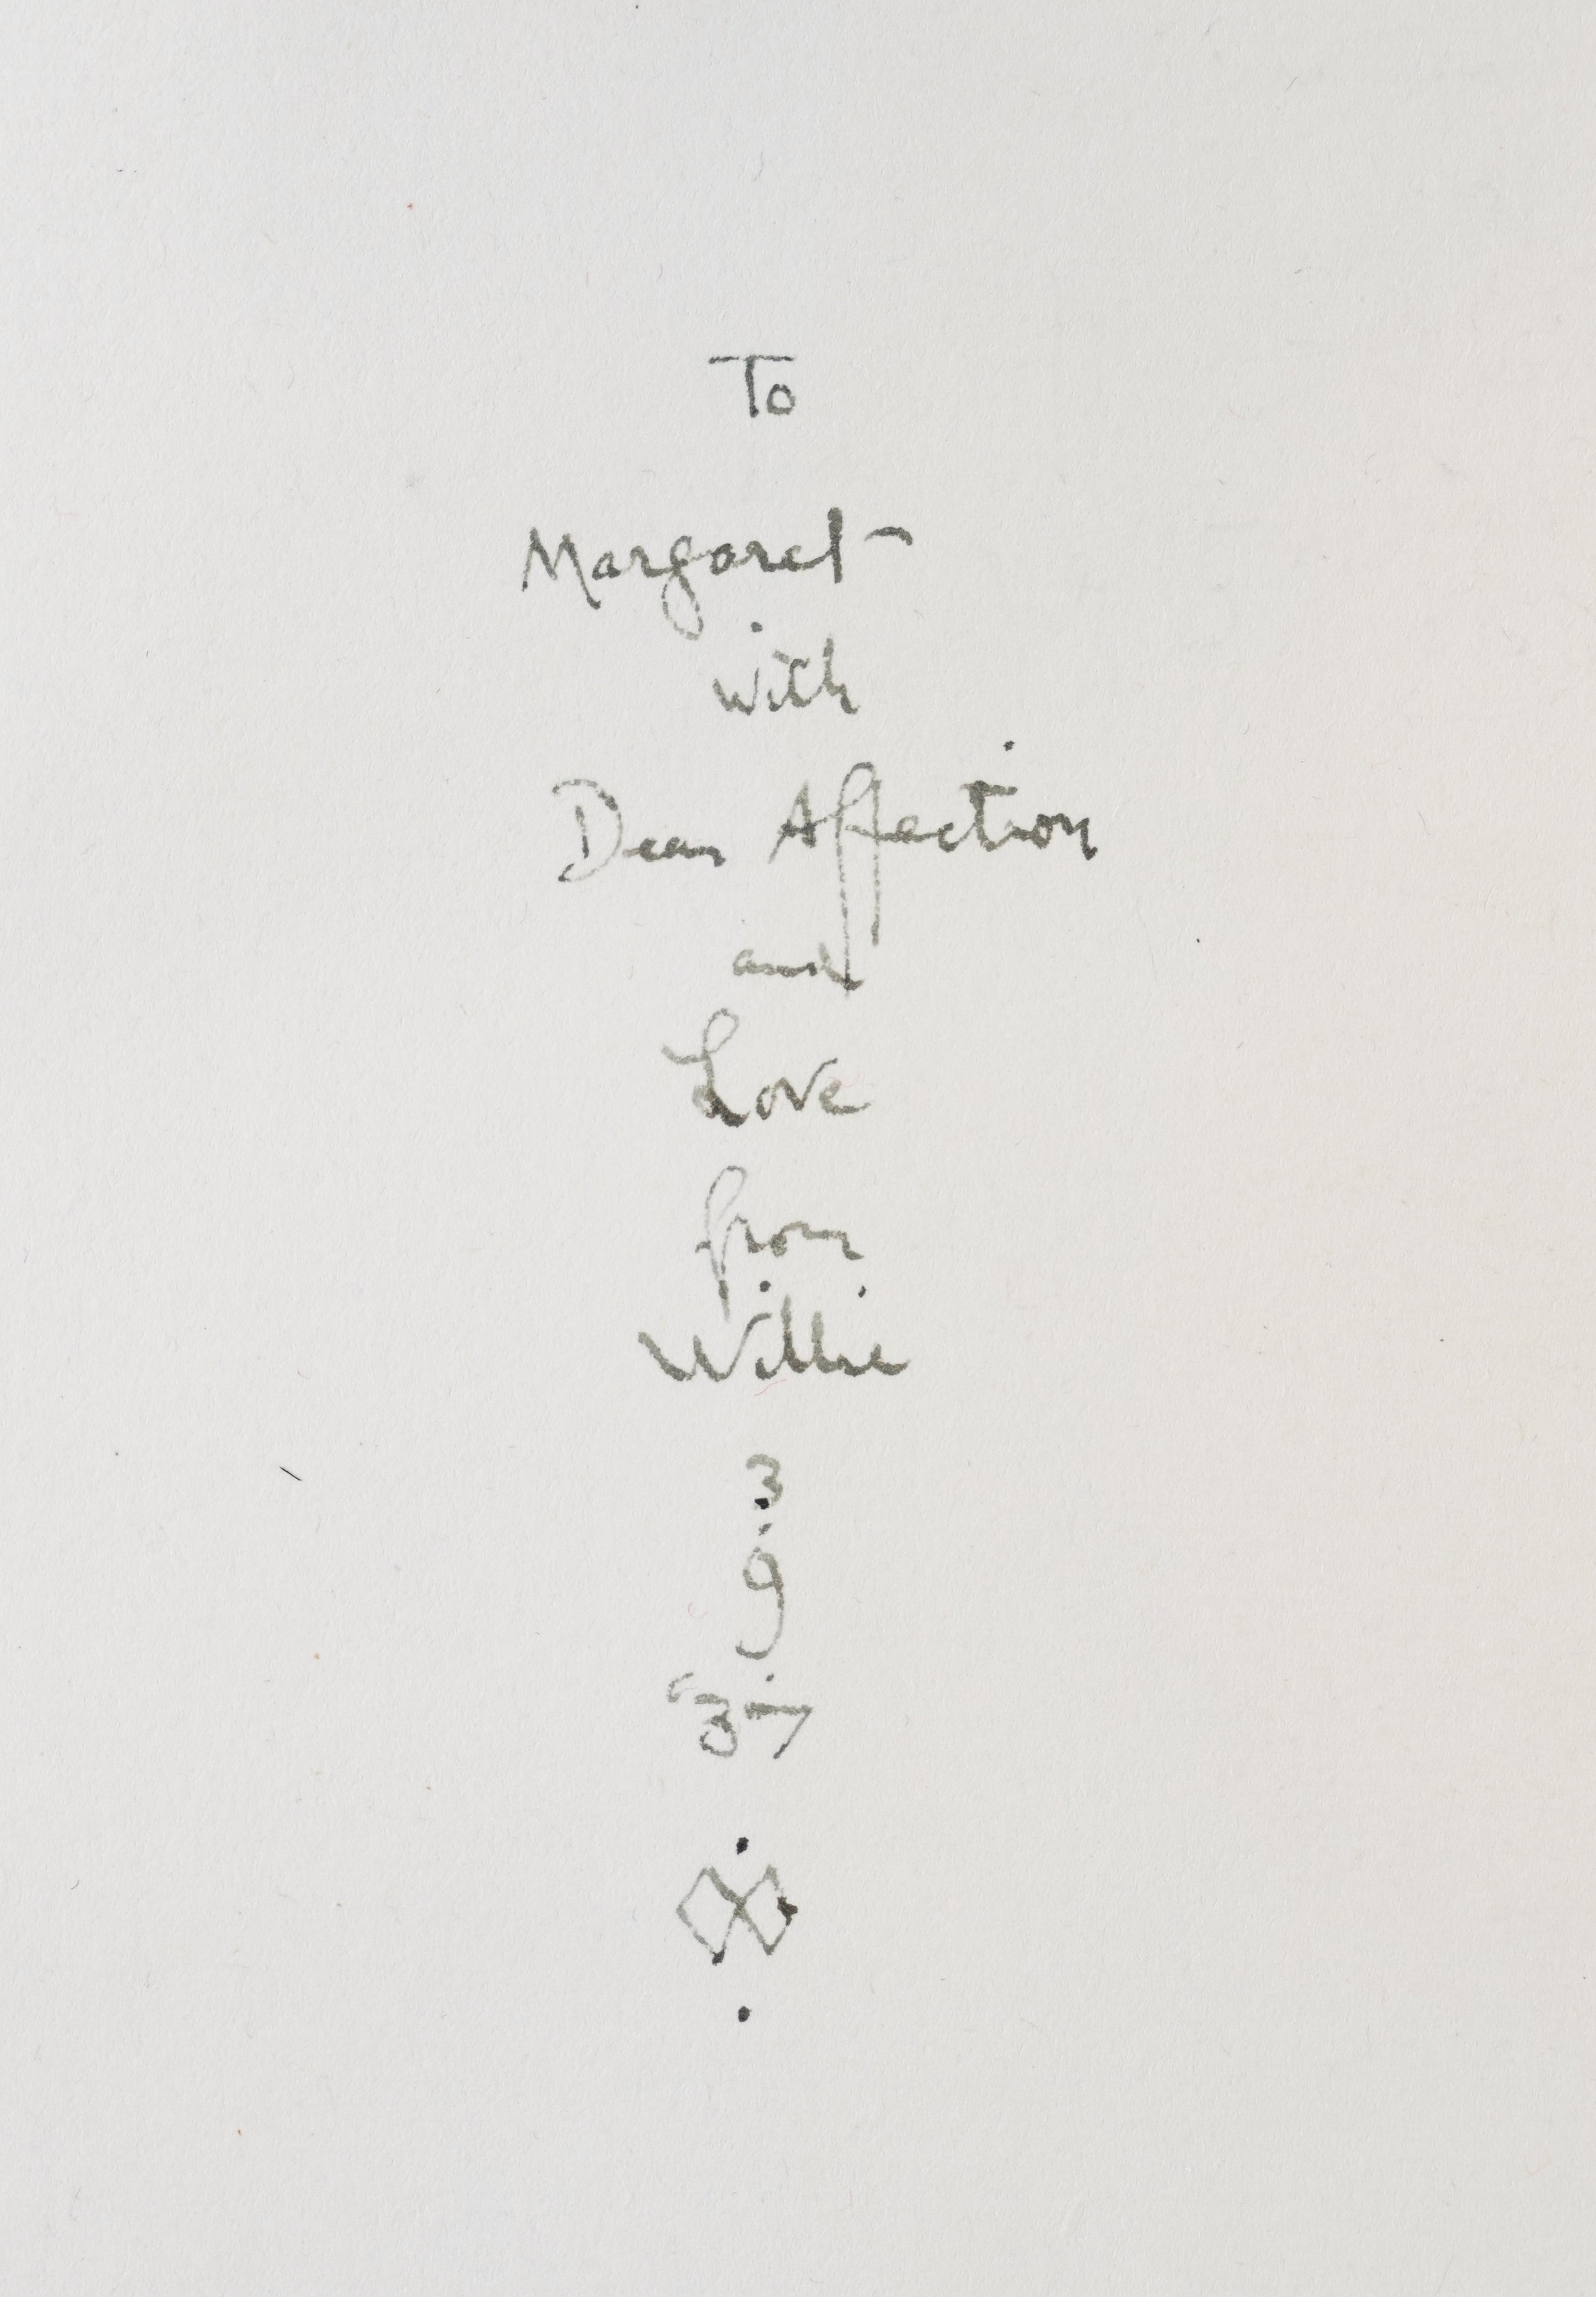 To
Margaret
with
Dear Affection
and
Love
from
Willie
3
.
9
.
'37